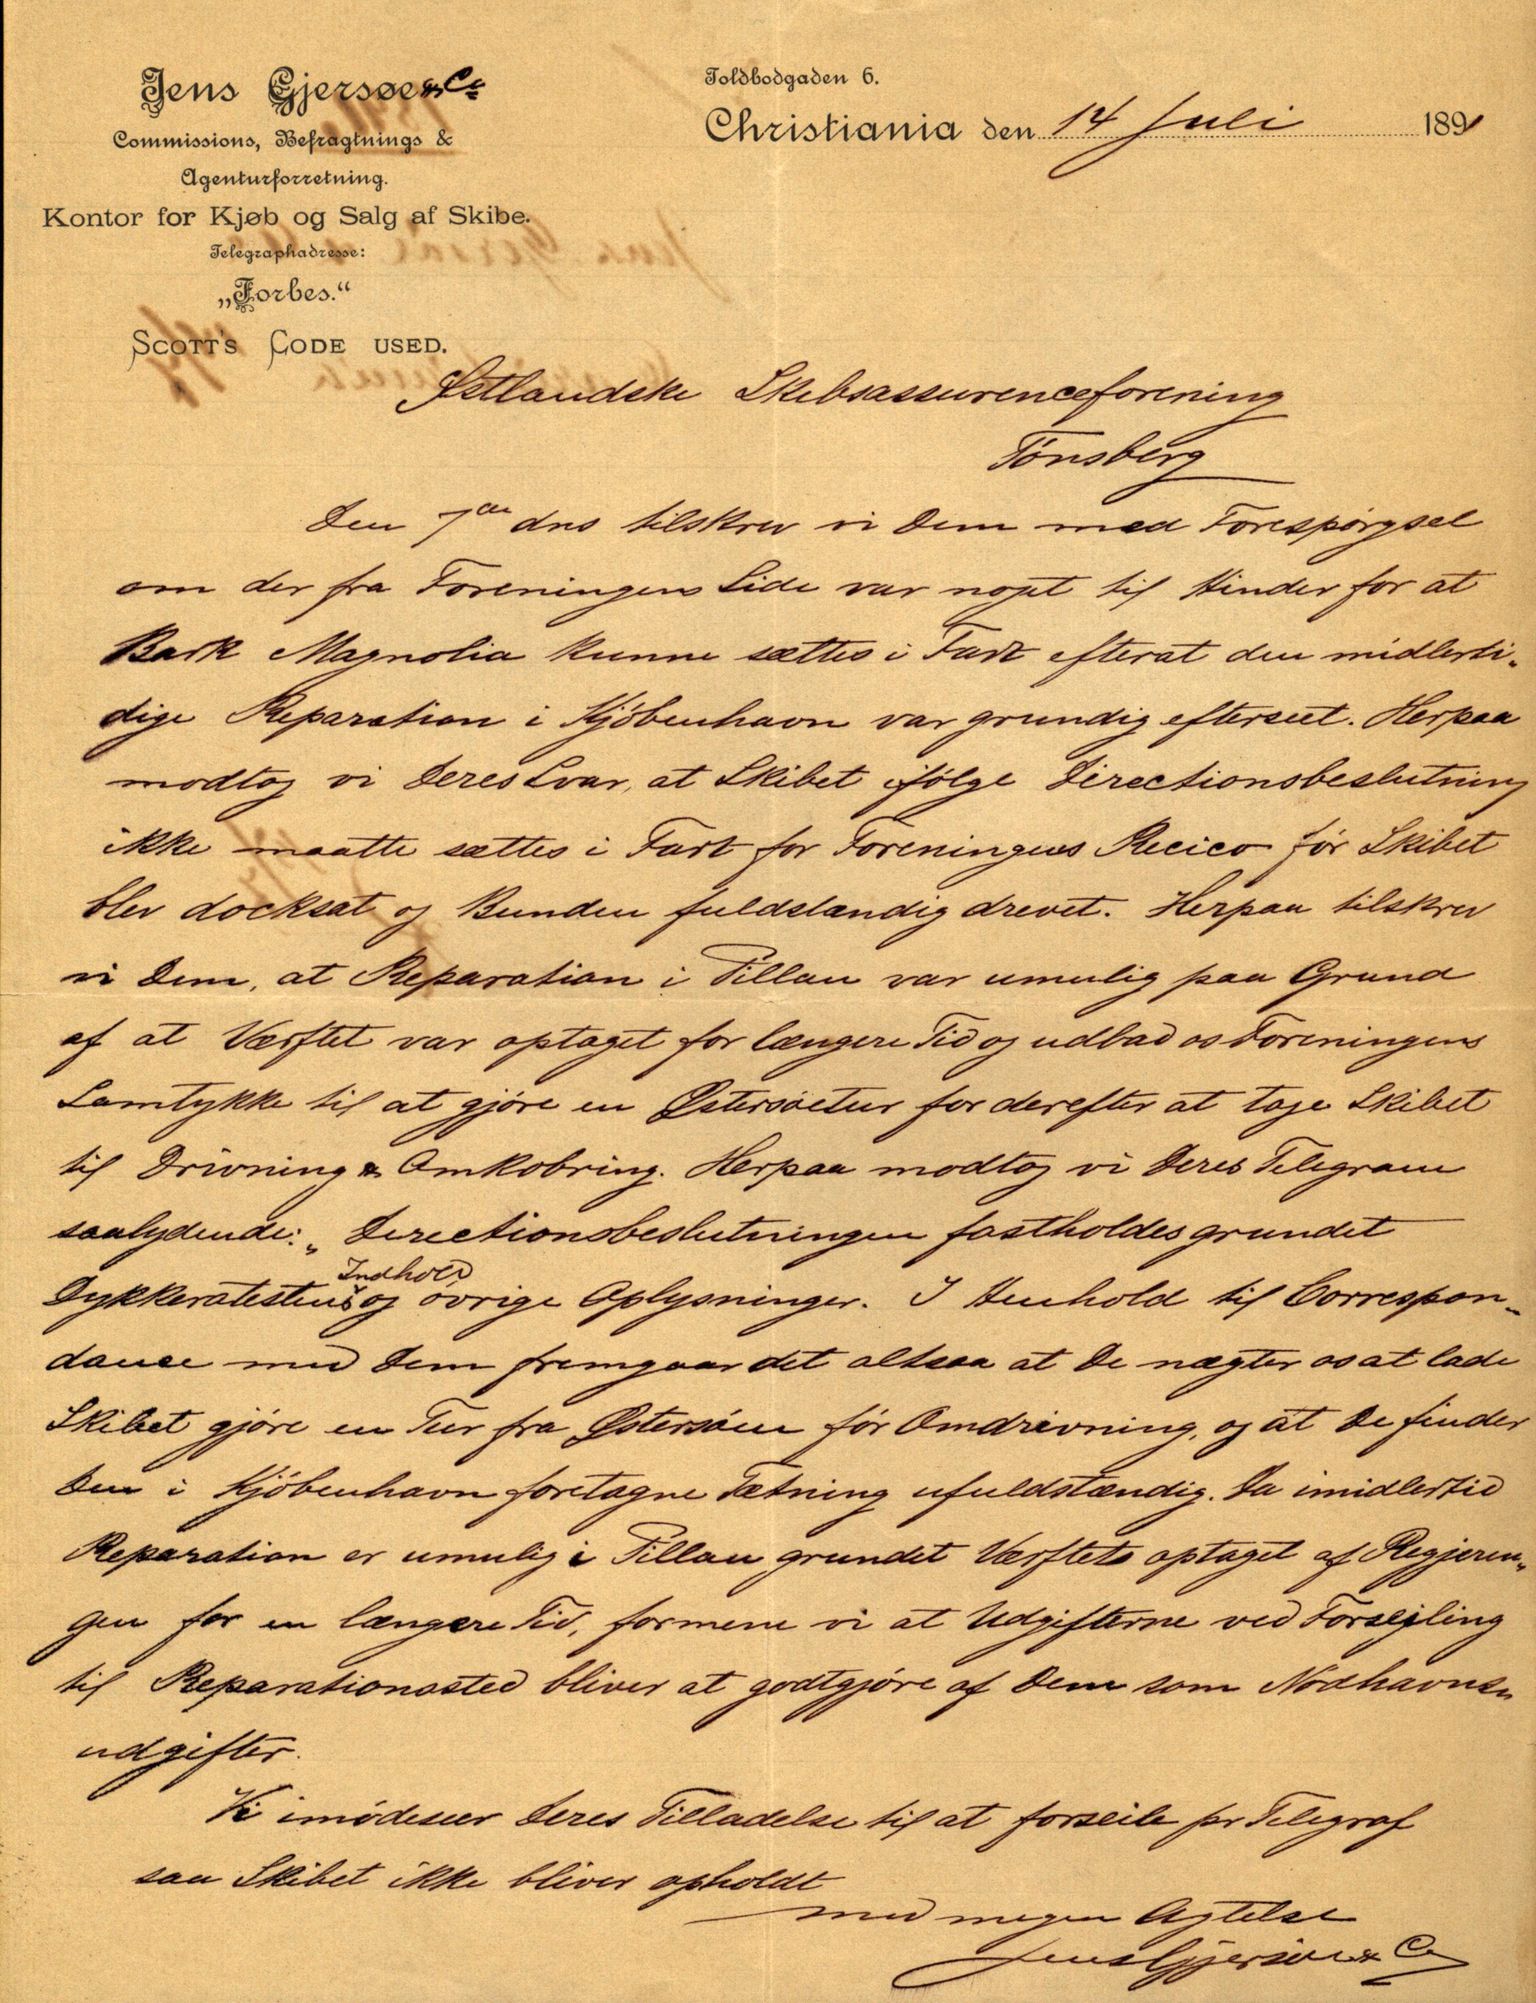 Jens Gjersøe & Co
Commissions, Befragtnings &
Agenturforretning.
Kontor for Kjøb og Salg af Skibe.
Telegraphadresse:
„Forbes.“
SCOTT'S CODE USED.
Toldbodgaden 6.
Christiania den 14 Juli 1891
Østlandske Skibsassuranceforening
Tönsberg
Den 7de dns tilskrev vi Dem med Forespörgsel
om der fra Foreningens Side var noget til Hinder for at
Bark Magnolia kunne sættes i Fart efterat den midlerti-
dige Reparation i Kjöbenhavn var grundig efterseet. Herpaa
modtog vi Deres Svar, at Skibet ifölge Directionsbeslutning
ikke maatte sættes i Fart for Foreningens Recico för Skibet
blev docksat og Bunden fuldstændig drevet. Herpaa tilskrev
vi Dem, at Reparation i Pillau var umulig paa Grund
af at Værftet var optaget for længere Tid og udbad os Foreningens
Samtykke til at gjöre en Østersöetur for derefter at tage Skibet
til Drivning & Omkobring. Herpaa modtog vi Deres Telegram
saalydende: „Directionsbeslutningen fastholdes grundet
Indhold
Dykkeratestens og övrige Oplysninger. I Henhold til Correspon-
dance med Dem fremgaar det altsaa at De nægter os at lade
Skibet gjöre en Tur fra Østersöen för Omdrivning, og at De finder
den i Kjöbenhavn foretagne Tætning ufuldstændig. Da imidlertid
Reparation er umulig i Pillau grundet Værftets optaget af Regjerin-
gen for en længere Tid, formene vi at Udgifterne ved Forsejling
til Reparationssted bliver at godtgjöre af Dem som Nödhavns-
udgifter.
Vi imödeseer Deres Tilladelse til at forseile pr Telegraf
saa Skibet ikke bliver opholdt
med megen Agtelse
Jens Gjersöe & Co